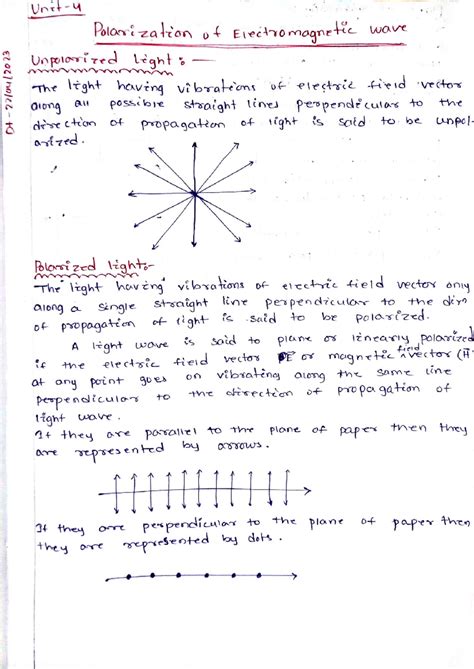 Unit-4
Polarization of Electromagnetic wave
Dt - 22/04/2023
Unpolarized light :-
The light having vibrations of electric field vector
along all possible straight lines perpendicular to the
direction of propagation of light is said to be unpol-
arized.
Polarized light:-
The light having vibrations of electric field vector only
along a single straight line perpendicular to the dirn
of propagation of light is said to be polarized.
A light wave is said to plane or linearly polarized
if the electric field vector E or magnetic field vector (H
at any point goes on vibrating along the same line
perpendicular to the direction of propagation of
light wave.
If they are parallel to the plane of paper then they
are represented by arrows.
If they are perpendicular to the plane of paper then
they are represented by dots.